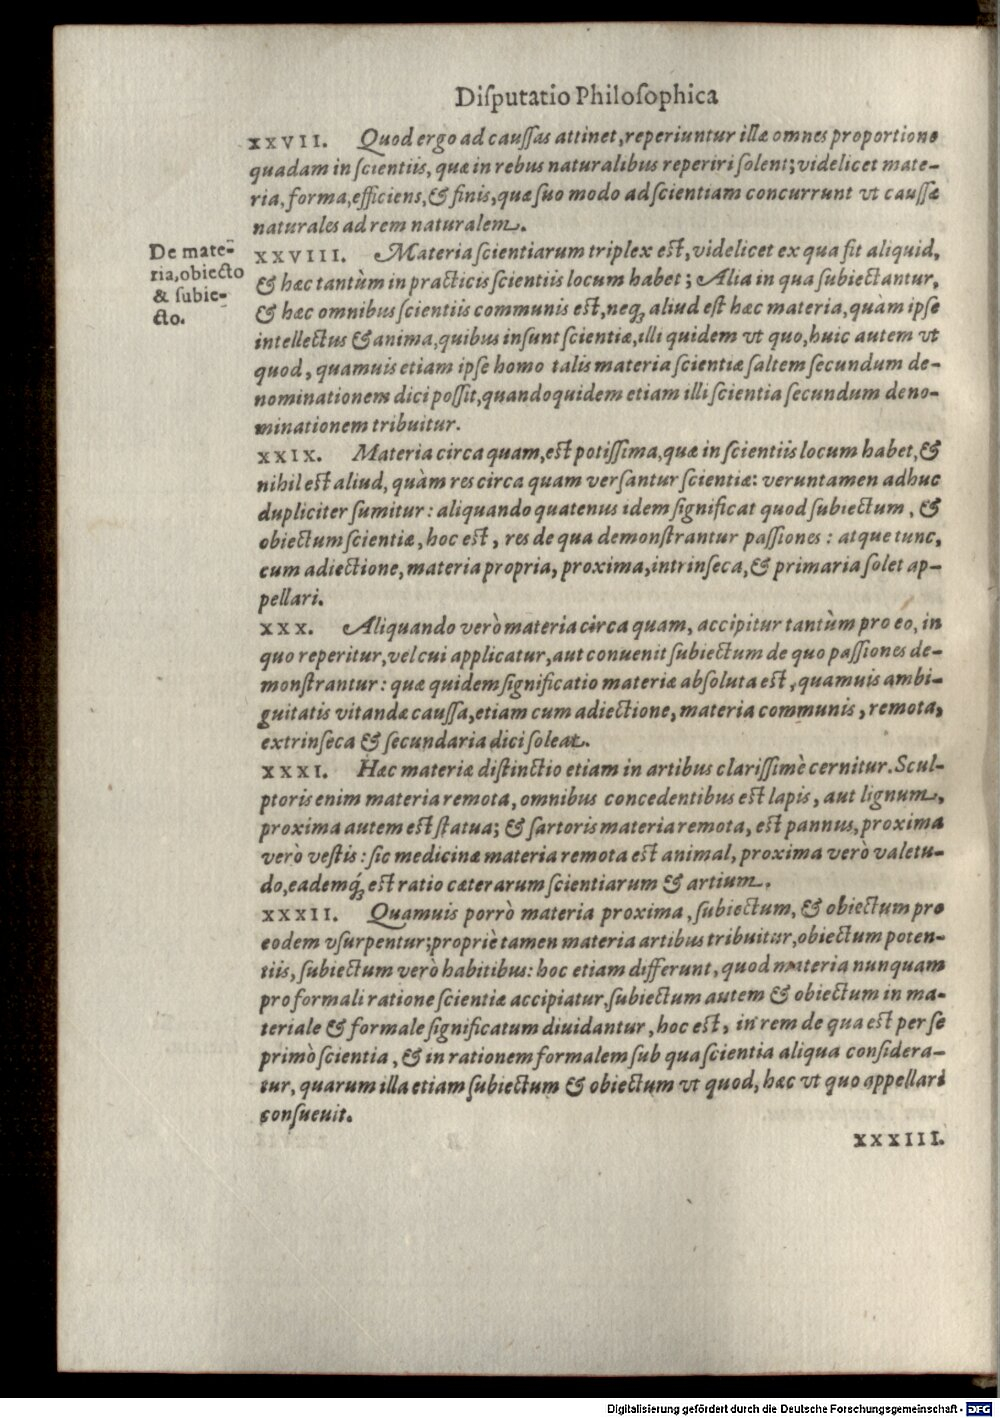 Diſputatio Philoſophica
XXVII. Quod ergo ad cauſſas attinet, reperiuntur illæ omnes proportione
quadam in ſcientiis, quæ in rebus naturalibus reperiri ſolent; videlicet mate-
ria, forma, efficiens, & finis, quæ ſuo modo ad ſcientiam concurrunt vt cauſſæ
naturales ad rem naturalem.
De mate-
ria, obiecto
& ſubie-
cto.
XXVIII. Materia ſcientiarum triplex eſt, videlicet ex qua fit aliquid,
& hæc tantùm in practicis ſcientiis locum habet; Alia in qua ſubiectantur,
& hæc omnibus ſcientiis communis eſt, neq; aliud eſt hæc materia, quàm ipſe
intellectus & anima, quibus inſunt ſcientiæ, illi quidem vt quo, huic autem vt
quod, quamuis etiam ipſe homo talis materia ſcientiæ ſaltem ſecundum de-
nominationem dici poſſit, quandoquidem etiam illi ſcientia ſecundum deno-
minationem tribuitur.
XXIX. Materia circa quam, eſt potiſſima, quæ in ſcientiis locum habet, &
nihil eſt aliud, quàm res circa quam verſantur ſcientiæ: veruntamen adhuc
dupliciter ſumitur: aliquando quatenus idem ſignificat quod ſubiectum, &
obiectum ſcientiæ, hoc eſt, res de qua demonſtrantur paſſiones: atque tunc,
cum adiectione, materia propria, proxima, intrinſeca, & primaria ſolet ap-
pellari.
XXX. Aliquando verò materia circa quam, accipitur tantùm pro eo, in
quo reperitur, vel cui applicatur, aut conuenit ſubiectum de quo paſſiones de-
monſtrantur: quæ quidem ſignificatio materiæ abſoluta eſt, quamuis ambi-
guitatis vitandæ cauſſa, etiam cum adiectione, materia communis, remota,
extrinſeca & ſecundaria dici ſoleat.
XXXI. Hæc materiæ diſtinctio etiam in artibus clariſſimè cernitur. Scul-
ptoris enim materia remota, omnibus concedentibus eſt lapis, aut lignum,
proxima autem eſt ſtatua; & ſartoris materia remota, eſt pannus, proxima
verò veſtis: ſic medicinæ materia remota eſt animal, proxima verò valetu-
do, eademq́; eſt ratio cæterarum ſcientiarum & artium.
XXXII. Quamuis porrò materia proxima, ſubiectum, & obiectum pro
eodem vſurpentur; propriè tamen materia artibus tribuitur, obiectum poten-
tiis, ſubiectum verò habitibus: hoc etiam differunt, quod materia nunquam
pro formali ratione ſcientiæ accipiatur, ſubiectum autem & obiectum in ma-
teriale & formale ſignificatum diuidantur, hoc eſt, in rem de qua eſt per ſe
primò ſcientia, & in rationem formalem ſub qua ſcientia aliqua conſidera-
tur, quarum illa etiam ſubiectum & obiectum vt quod, hæc vt quo appellari
conſueuit.
XXXIII.
Digitalisierung gefördert durch die Deutsche Forschungsgemeinschaft - DFG